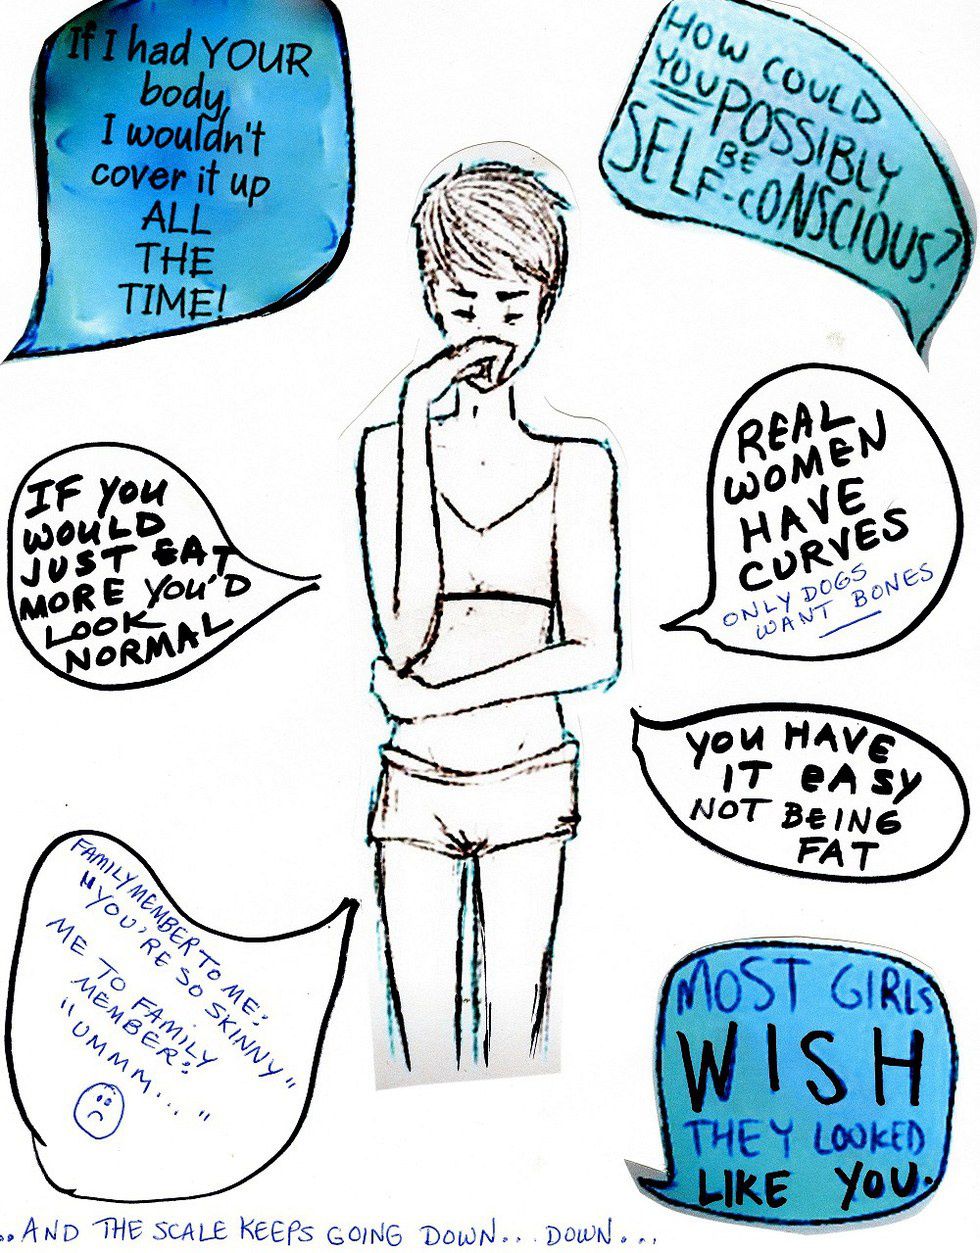 If I had YOUR
body,
I wouldn't
cover it up
ALL
THE
TIME!
HOW COULD
YOU POSSIBLY
BE
SELF-CONSCIOUS?
IF YOU
WOULD
JUST EAT
MORE YOU'D
LOOK
NORMAL
REAL
WOMEN
HAVE
CURVES
ONLY DOGS
WANT BONES
YOU HAVE
IT EASY
NOT BEING
FAT
FAMILY MEMBER TO ME:
"YOU'RE SO SKINNY"
ME TO FAMILY
MEMBER:
"UMMM..."
MOST GIRLS
WISH
THEY LOOKED
LIKE YOU.
..AND THE SCALE KEEPS GOING DOWN... DOWN...